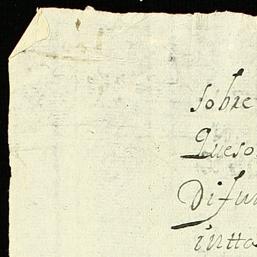 sobre
queso
Difu
intta